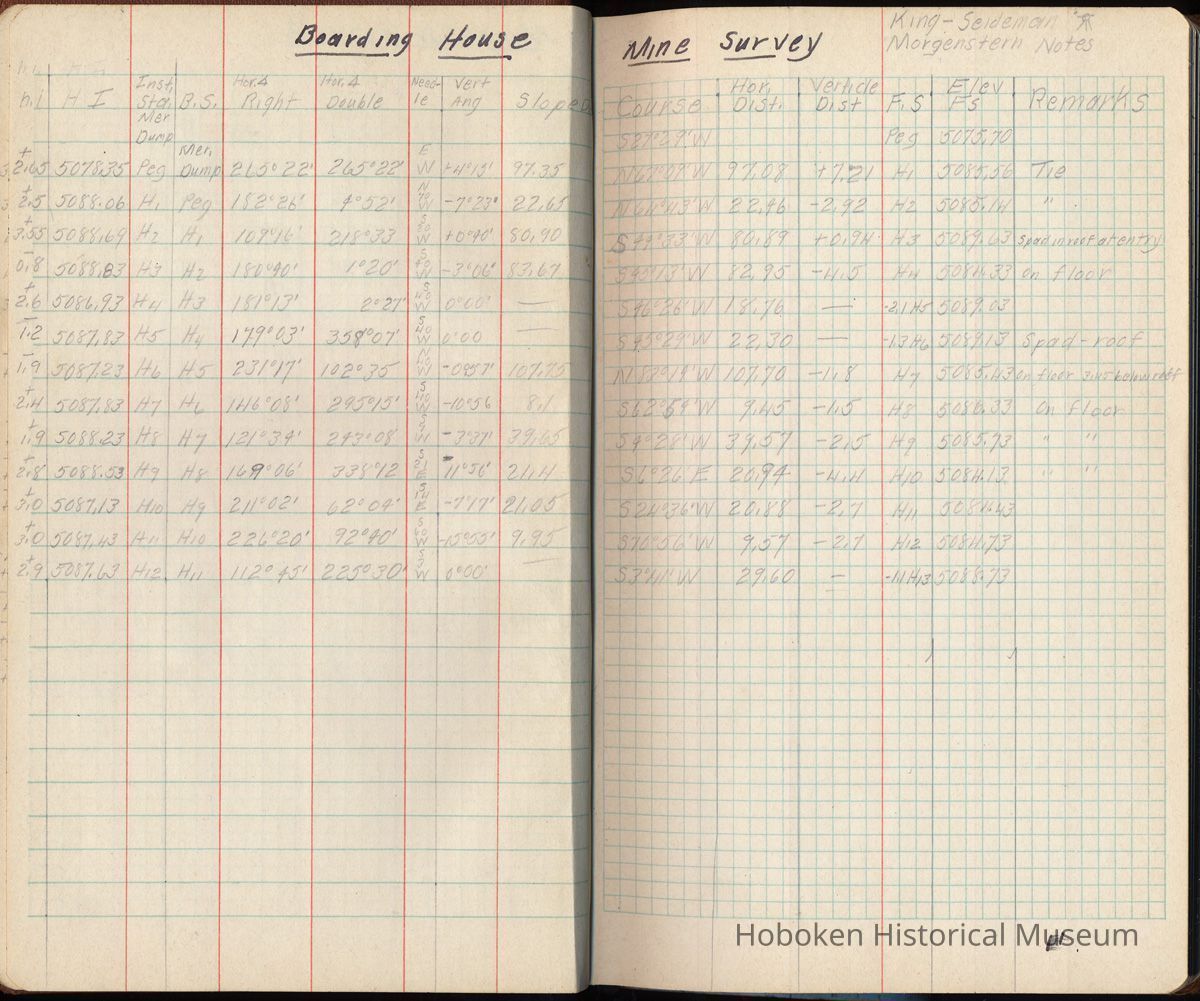 Boarding House
h.i. H I Inst. Sta. B.S. Hor. ∆ Right Hor. ∆ Double Needle Vert Ang Slope D
Mer. Dump
Mer.
+2.65 5078.35 Peg Dump 265°22' 265°22' E W +4°15' 97.35
+2.5 5088.06 H1 Peg 182°26' 4°52' N W -7°23' 22.65
+3.55 5088.69 H2 H1 109°16' 218°33 S W +0°40' 80.90
-0.8 5088.83 H3 H2 180°40' 1°20' S W -3°06' 83.67
+2.6 5086.93 H4 H3 181°13' 2°27' S W 0°00' —
-1.2 5087.83 H5 H4 179°03' 358°07' S 40 W 0°00 —
-1.9 5087.23 H6 H5 231°17' 102°35 N W -0°57' 107.75
+2.4 5087.83 H7 H6 146°08' 295°15' S W -10°56 8.1
+1.9 5088.23 H8 H7 121°34' 243°08' S W -3°37' 39.65
+2.8 5088.53 H9 H8 169°06' 338°12 S 21 E -11°56' 21.4
+3.0 5087.13 H10 H9 211°02' 62°04' S 14 E -7°17' 21.05
+3.0 5087.43 H11 H10 226°20' 92°40' S W -15°55' 9.95
+2.9 5087.63 H12 H11 112°45' 225°30' S W 0°00' —
Mine Survey
King-Seideman
Morgenstern Notes
Course Hor. Dist. Verticle Dist F.S Elev Fs Remarks
S27°29'W Peg 5075.70
N67°07'W 97.08 +7.21 H1 5085.56 Tie
N64°43'W 22.46 -2.92 H2 5085.14 "
S44°33'W 80.89 +0.94 H3 5089.63 Spad in roof at entry
S45°13'W 82.95 -4.5 H4 5084.33 on floor
S46°26'W 18.76 — -2.1 H5 5089.03
S45°29'W 22.30 — -1.3 H6 5089.13 Spad-roof
N83°14'W 107.70 -1.8 H7 5085.43 on floor 3.45 below roof
S62°59'W 9.45 -1.5 H8 5086.33 On floor
S4°28'W 39.57 -2.5 H9 5085.73 " "
S6°26'E 20.94 -4.4 H10 5084.13 " "
S24°36'W 20.88 -2.7 H11 5084.43
S70°56'W 9.57 -2.7 H12 5084.73
S3°41'W 29.60 — -1.1 H13 5088.73
Hoboken Historical Museum